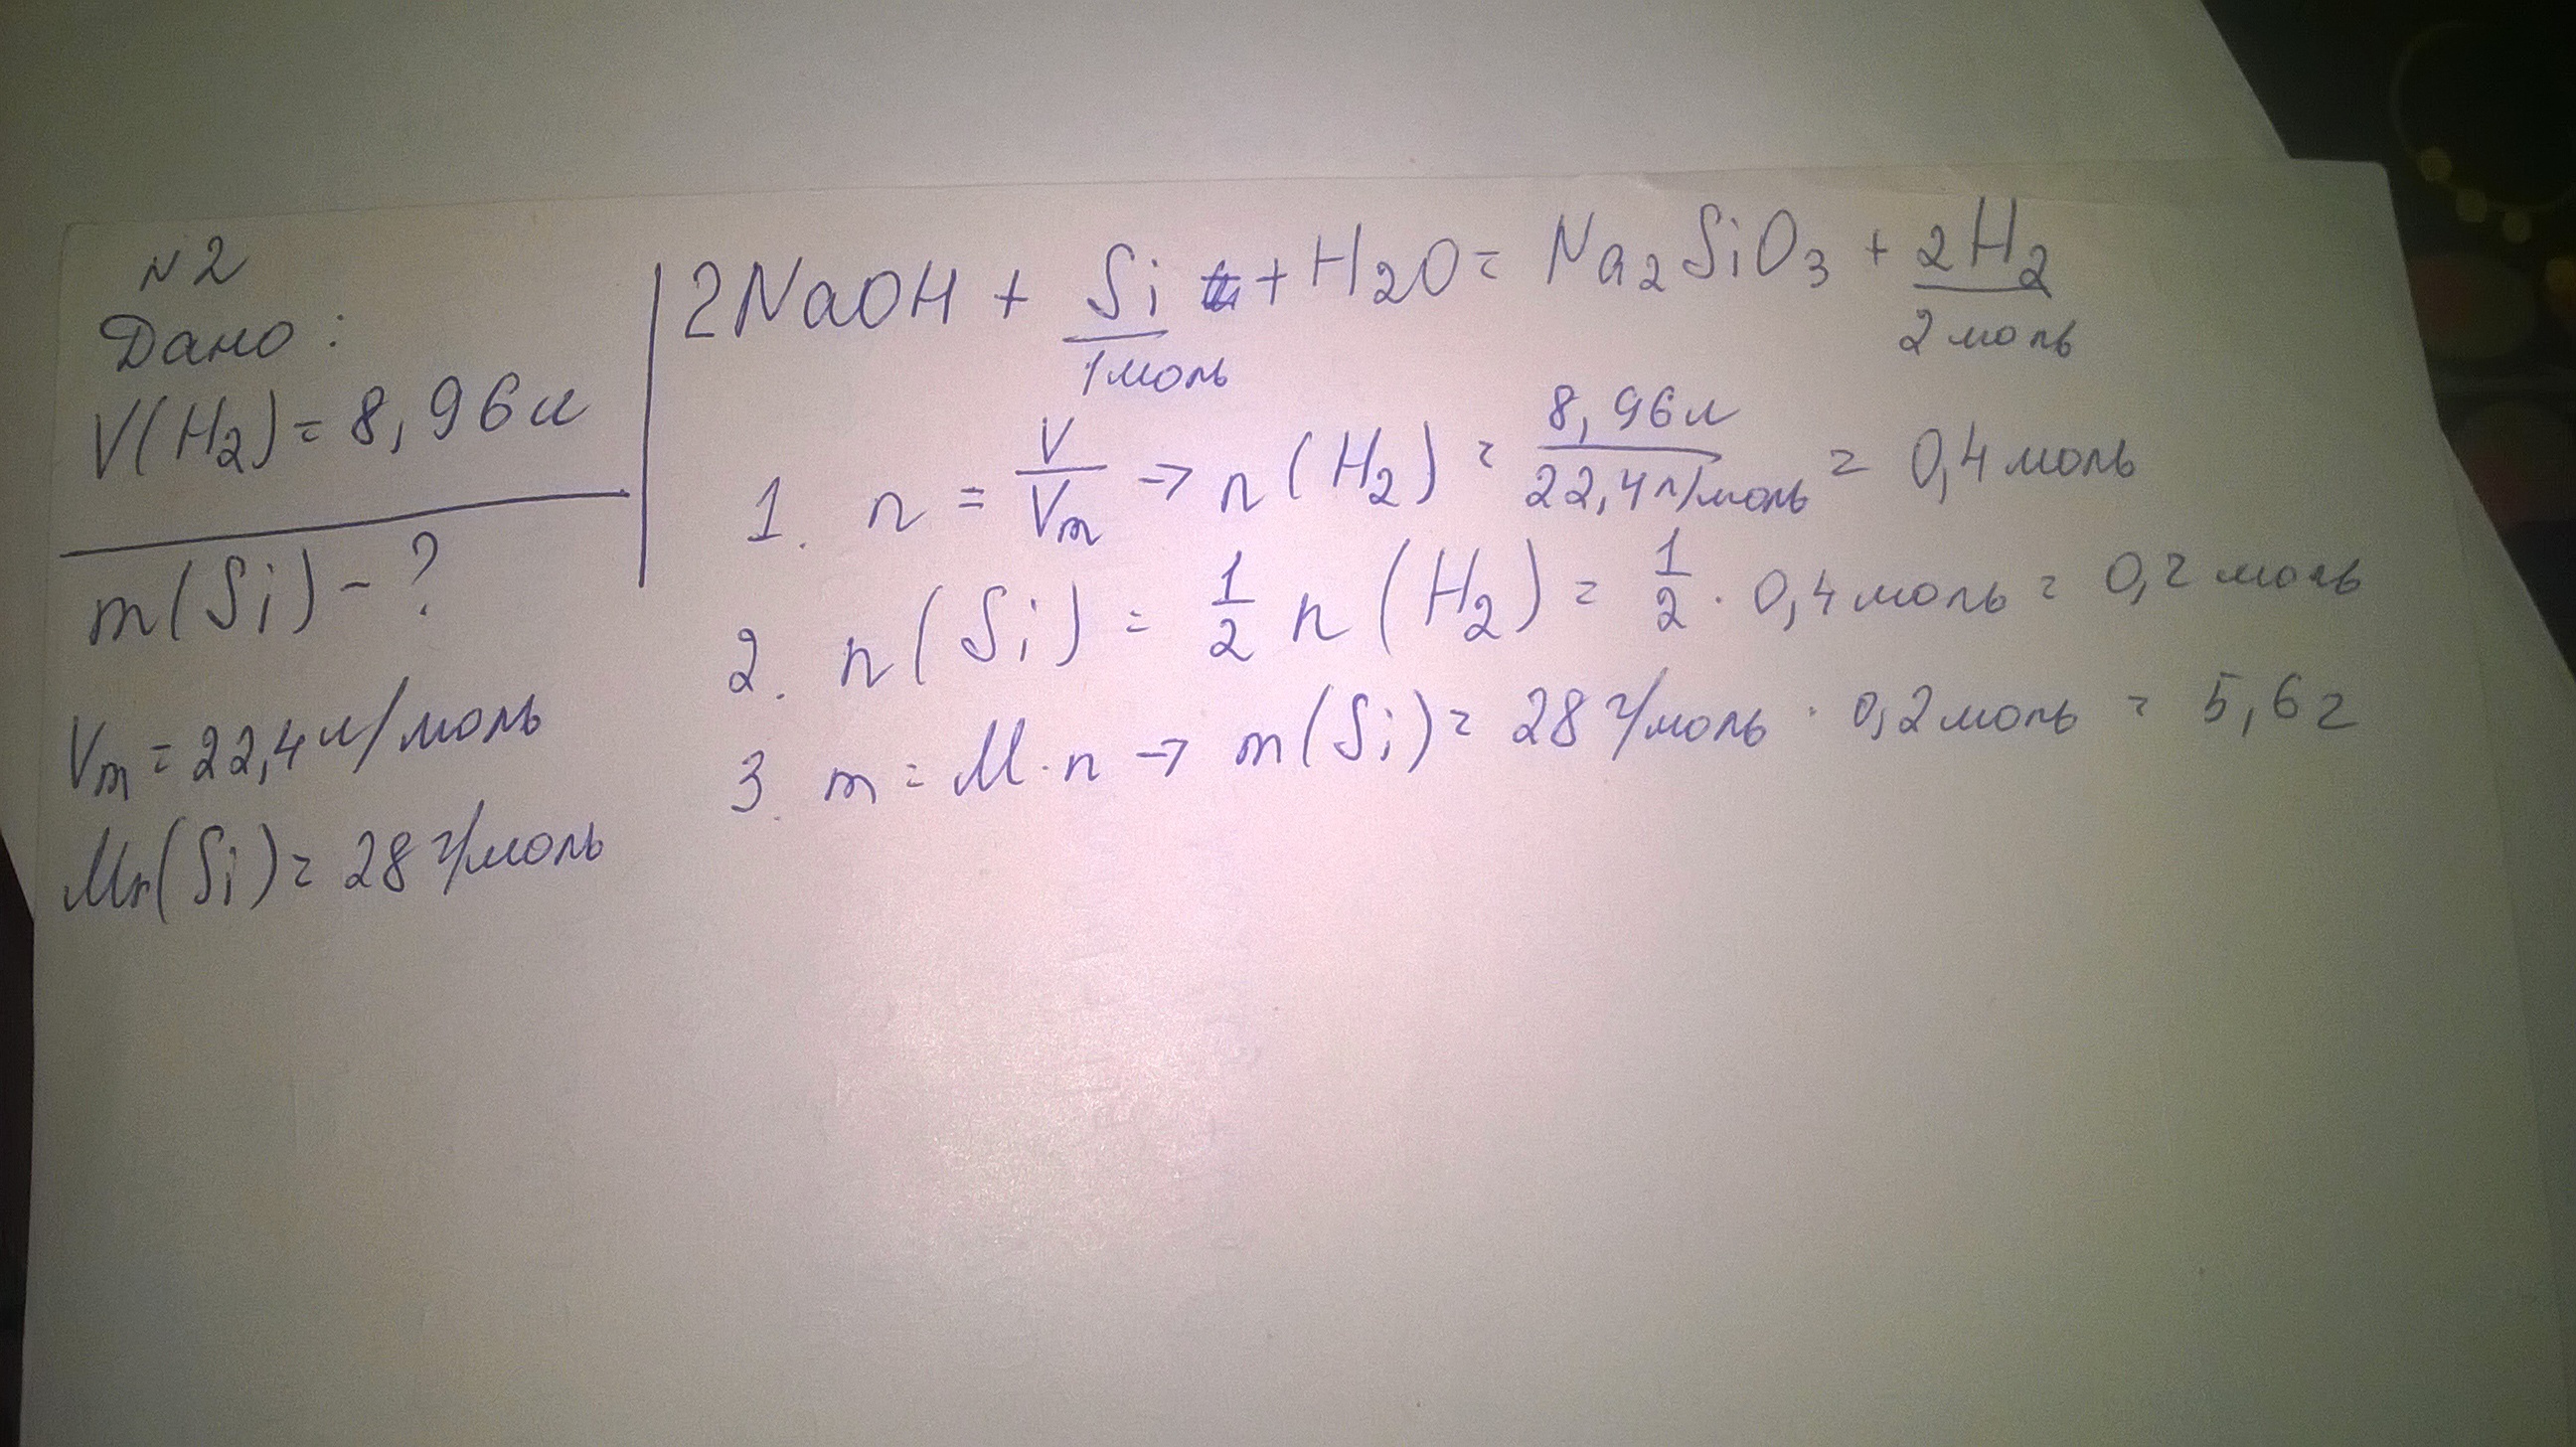 N2
Дано:
V(H2) = 8,96л
m(Si) - ?
Vm = 22,4 л/моль
Mr(Si) = 28 г/моль
2NaOH + Si + H2O = Na2SiO3 + 2H2
1моль 2 моль
1. n = V/Vm → n(H2) = 8,96л/22,4л/моль = 0,4 моль
2. n(Si) = 1/2 n(H2) = 1/2 · 0,4 моль = 0,2 моль
3. m = M · n → m(Si) = 28 г/моль · 0,2моль = 5,6г